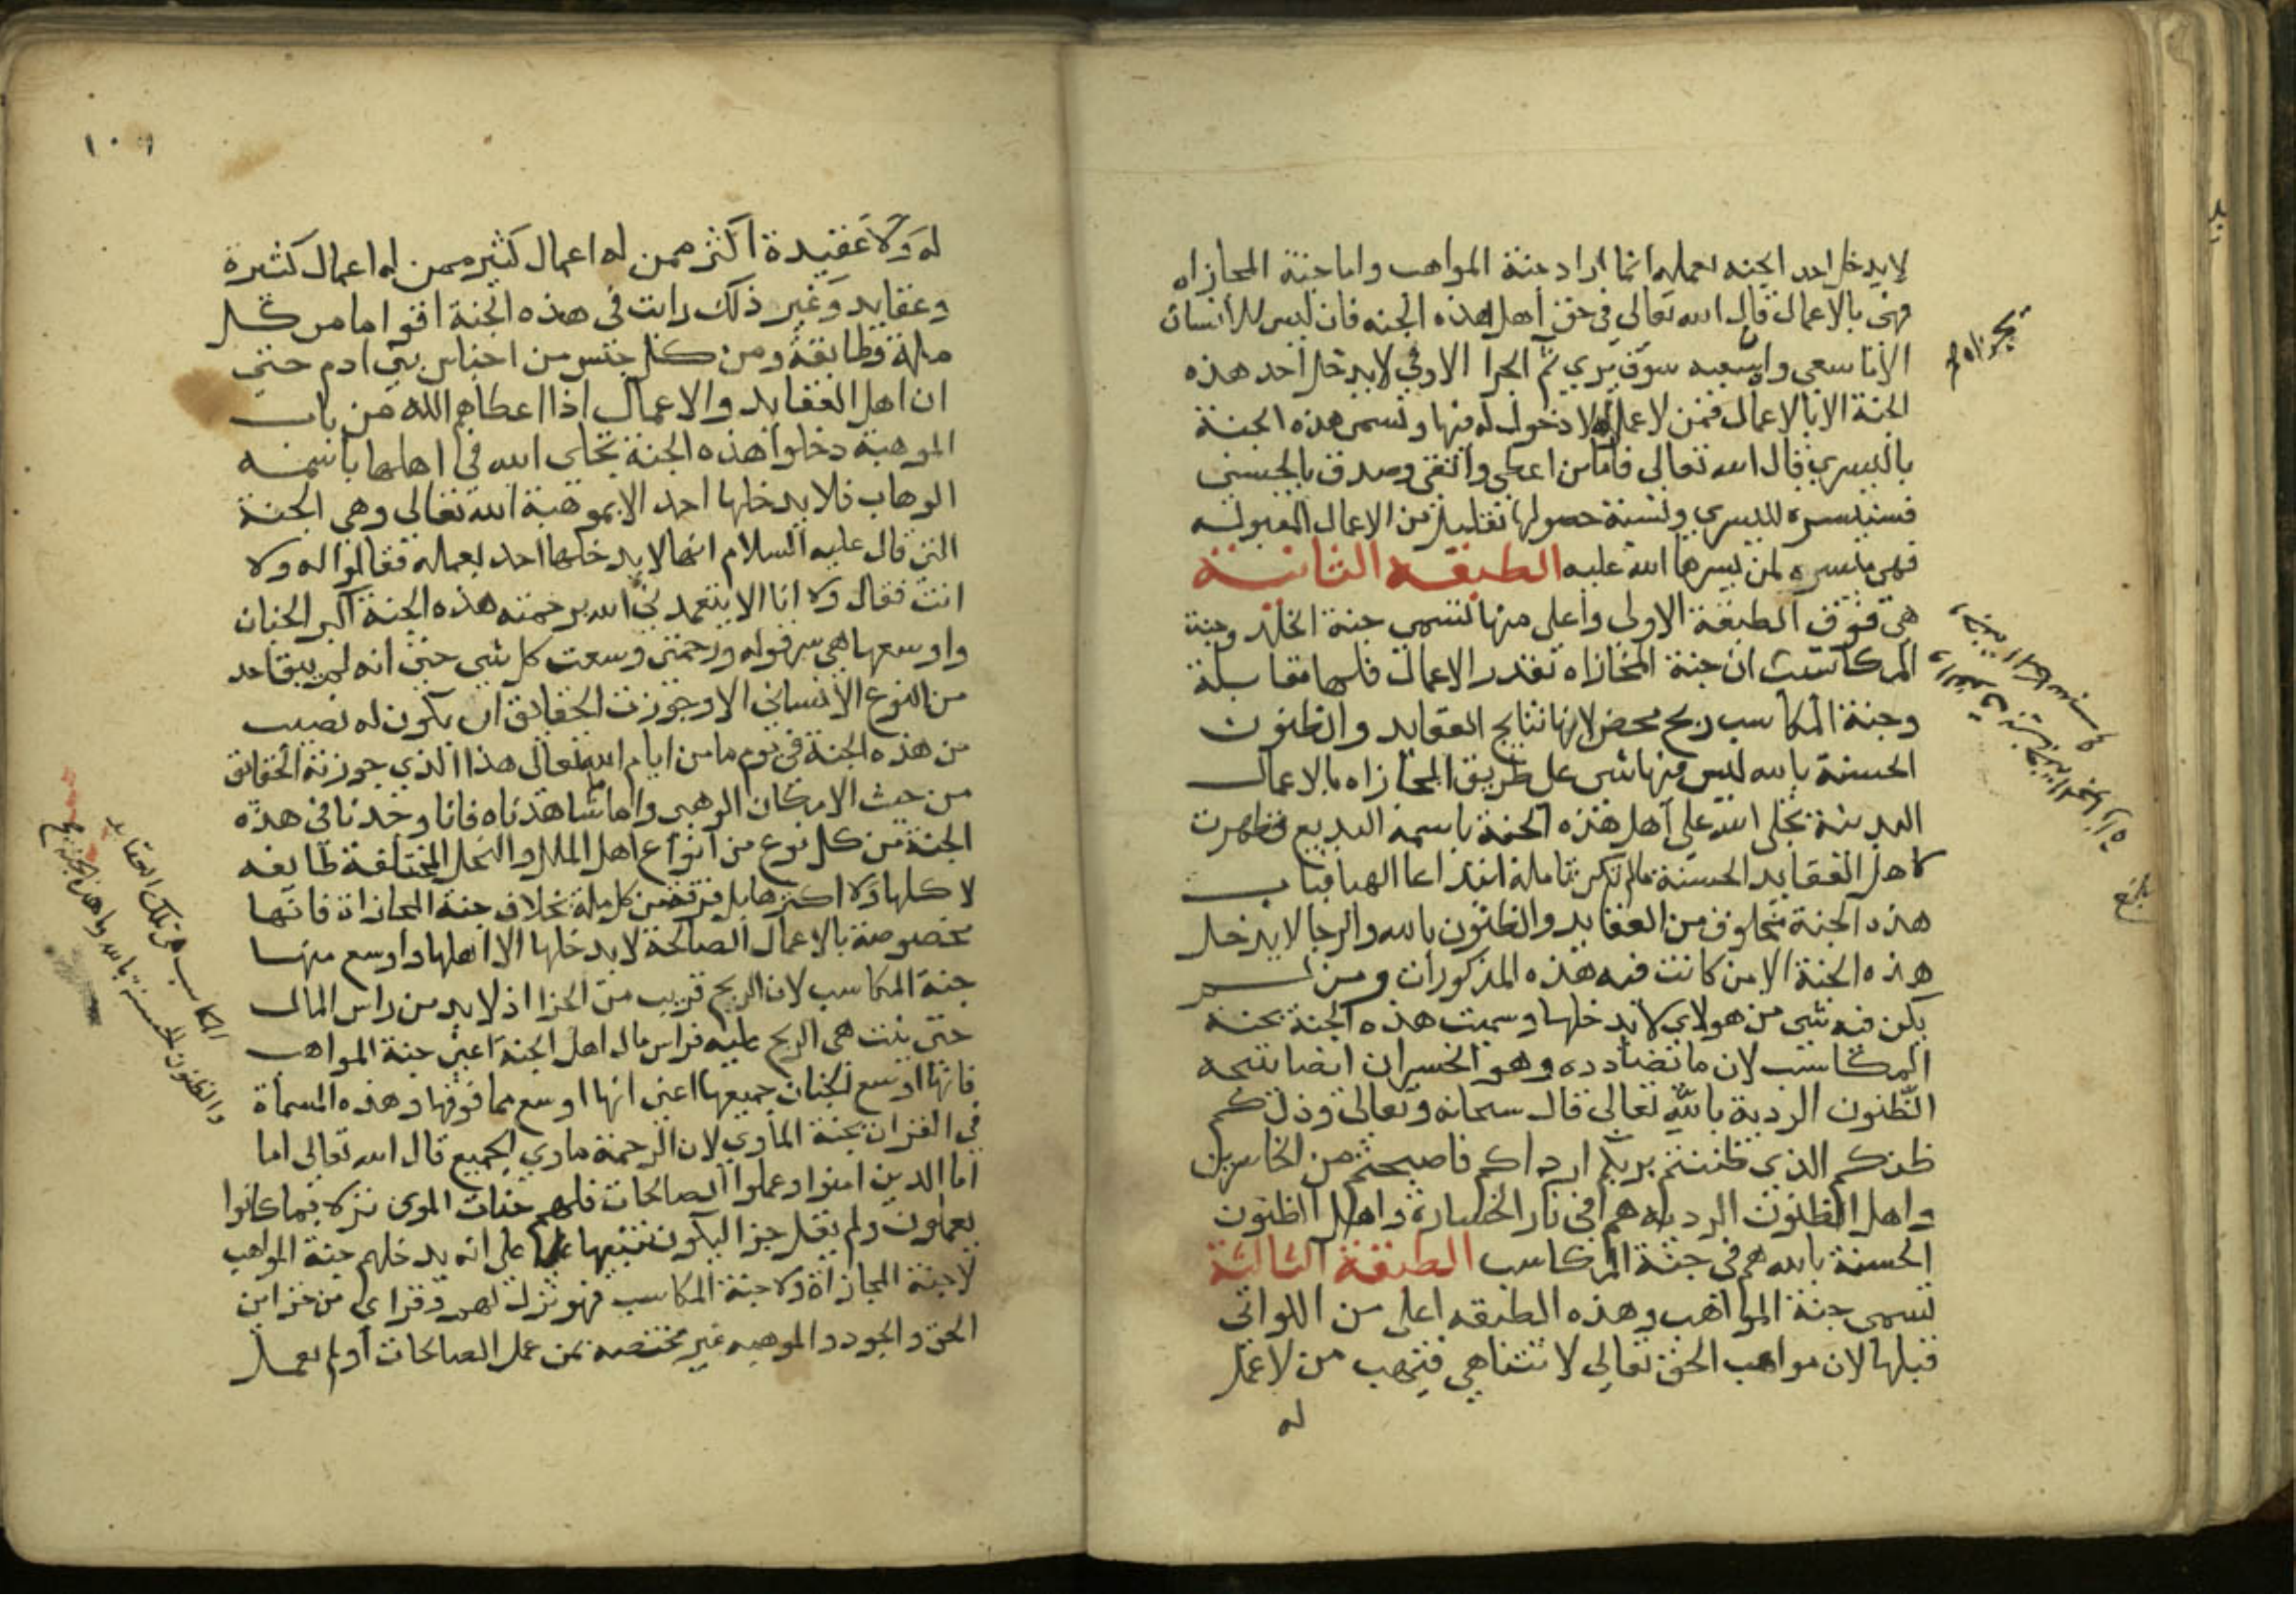 لا يدخل احد الجنه بعمله انما اراد جنة المواهب واما جنة المجازاه
فهي بالاعمال قال الله تعالى في حق أهل هذه الجنه فان ليس للانسان
الا ما سعى وان سعيه سوف يرى ثم الجزا الاوفى لا يدخل أحد هذه
الجنة الا بالاعمال فمن لا عمل له لا دخول له فيها وتسمى هذه الجنة
باليسرى قال الله تعالى فاما من اعطى واتقى وصدق بالحسنى
فسنيسره لليسرى ونسبة حصولها بقليل من الاعمال المقبوله
فهي ميسره لمن يسرها الله عليه الطبقه الثانية
هي فوق الطبقة الاولى وأعلى منها تسمى جنة الخلد وجنة
المكاسب ان جنة المجازاه بقدر الاعمال فلها مقابلة
وجنة المكاسب ربح محض لانها نتايج العقايد والظنون
الحسنة بالله ليس فيها شي على طريق المجازاه بالاعمال
البدنية تجلى الله على أهل هذه الجنة باسمه البديع فظهرت
لاهل العقايد الحسنة مالم تكن تامله ابتداعا الهيا فباب
هذه الجنة مخلوق من العقايد والظنون بالله والرجا لا يدخل
هذه الجنة الا من كانت فيه هذه المذكورات ومن لم
يكن فيه شي من هولاي لا يدخلها وسميت هذه الجنة بجنة
المكاسب لان ما تضادده وهو الخسران ايضا نتيجه
الظنون الردية بالله تعالى قال سبحانه وتعالى وذلكم
ظنكم الذي ظننتم بربكم ارداكم فاصبحتم من الخاسرين
واهل الظنون الرديه هم في نار الخسارة واهل الظنون
الحسنة بالله هم في جنة المكاسب الطبقة الثالثة
تسمى جنة المواهب وهذه الطبقه اعلى من اللواتي
قبلها لان مواهب الحق تعالى لا تتناهى فيهب من لا عمل
له
بلغ
١٠٩
له ولا عقيدة اكثر ممن له اعمال كثير ممن له اعمال كثيرة
وعقايد وغير ذلك رايت في هذه الجنة اقواما من كل
ملة وطايفة ومن كل جنس من اجناس بني ادم حتى
ان اهل العقايد والاعمال اذا اعطاهم الله من باب
الموهبة دخلوا هذه الجنة تجلى الله في اهلها باسمه
الوهاب فلا يدخلها احد الا بموهبة الله تعالى وهي الجنة
التي قال عليه السلام انها لا يدخلها احد بعمله فقالوا له ولا
انت فقال ولا انا الا ان يتغمدني الله برحمته هذه الجنة اكبر الجنان
واوسعها هي سر قوله ورحمتي وسعت كل شي حتى انه لم يبق احد
من النوع الانساني الا وجوزت الحقايق ان يكون له نصيب
من هذه الجنة في يوم ما من ايام الله تعالى هذا الذي جوزته الحقائق
من حيث الامكان الوهبي واما ما شاهدناه فانا وجدنا في هذه
الجنة من كل نوع من انواع اهل الملل والنحل المختلفة طايفه
لا كلها ولا اكثرها بل فرقة من كل ملة بخلاف جنة المجازاة فانها
مخصوصة بالاعمال الصالحة لا يدخلها الا اهلها واوسع منها
جنة المكاسب لان الربح قريب من الجزا اذ لا بد من راس المال
حتى ينت هي الربح عليه فراس مال اهل الجنة اعني جنة المواهب
فانها اوسع الجنان جميعها اعني انها اوسع مما فوقها وهذه المسماة
في القران بجنة الماوى لان الرحمة ماوى الجميع قال الله تعالى اما
اما الذين امنوا وعملوا الصالحات فلهم جنات الموى نزلا بما كانوا
يعملون ولم يقل جزا ليكون تنبيها على انه يدخلهم جنة المواهب
لا جنة المجازاة ولا جنة المكاسب فهو نزل لهم وقراي من خزاين
الحق والجود والموهبه غير مختصه بمن عمل الصالحات أو لم يعمل
المكاسب هي تلك العقايد
والظنون الحسنة بالله واما هذه الجنة